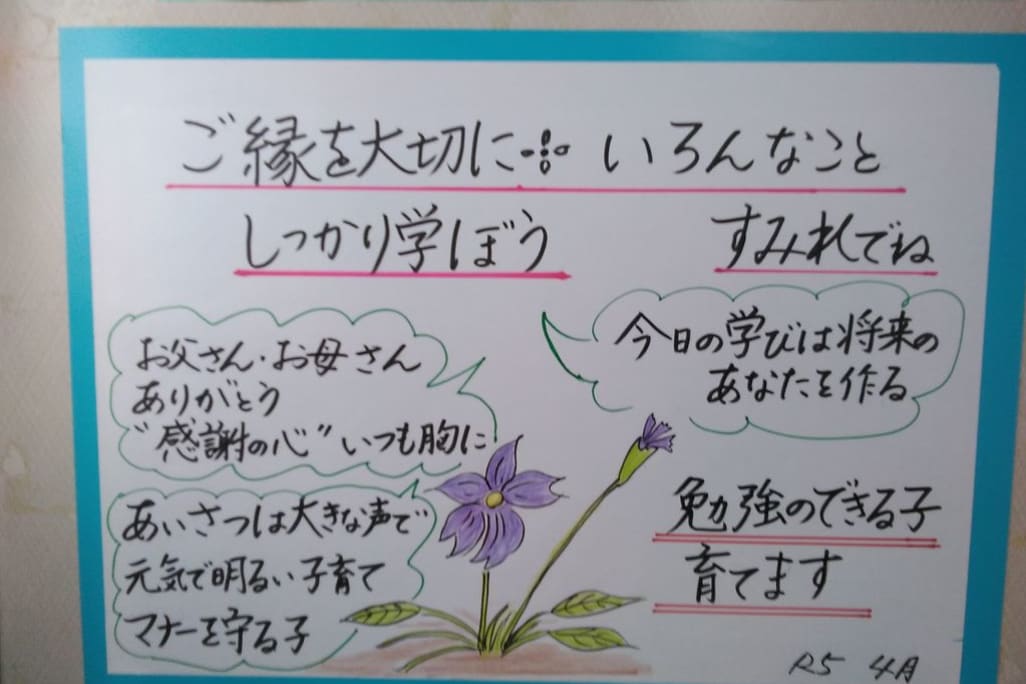 ご縁を大切に いろんなこと
しっかり学ぼう すみれでね
お父さん・お母さん
ありがとう
"感謝の心"いつも胸に
今日の学びは将来の
あなたを作る
あいさつは大きな声で
元気で明るい子育て
マナーを守る子
勉強のできる子
育てます
R5 4月